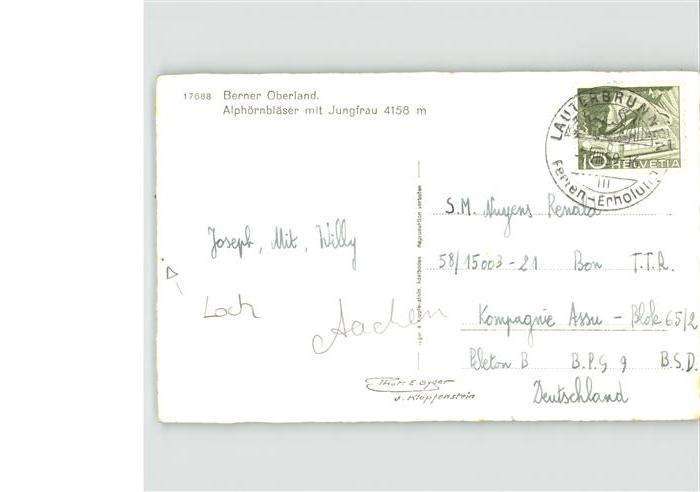 17688 Berner Oberland.
Alphörnbläser mit Jungfrau 4158 m
LAUTERBRUNN
Ferien-Erholung
10 HELVETIA
S.M. Nuyens Renald
58/15003-21 Bon T.T.R.
Kompagnie Assu - Blok 65/2
Peleton B B.P.G 9 B.S.D.
Deutschland
Joseph, Mit, Willy
Loch
Aachen
Thor E Gyger
J. Klopfenstein
Reproduktion verboten